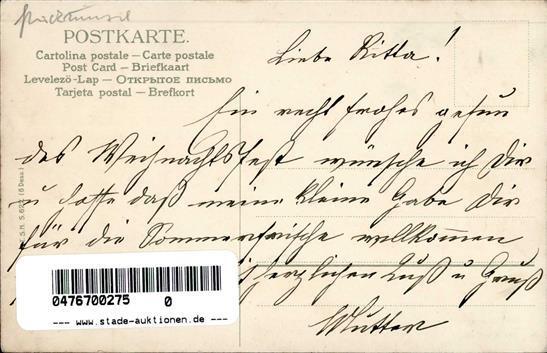 POSTKARTE.
Cartolina postale – Carte postale
Post Card – Briefkaart
Levelező-Lap – Открытое письмо
Tarjeta postal – Brefkort
Liebe Ritta!
Ein recht frohes gesun
des Weihnachtsfest wünsche ich Dir
u. hoffe daß meine kleine Gabe Dir
für die Sommerfrische willkommen
herzlichen Kuß u Gruß
Mutter
0476700275 0
--- www.stade-auktionen.de ---